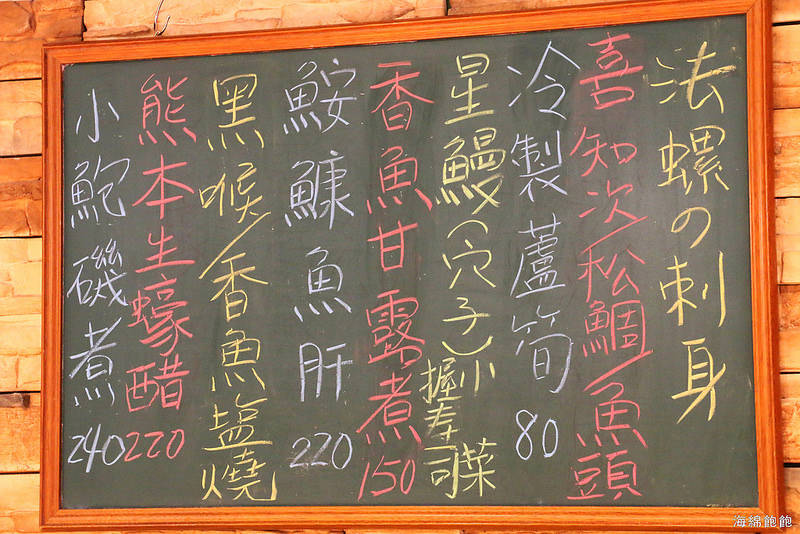 法螺の刺身
喜知次/松鯛/魚頭
冷製蘆筍 80
星鰻(穴子)小菜
握壽司
香魚甘露煮 150
鮟鱇魚肝 220
黑喉/香魚塩燒
熊本生蠔醋 220
小鮑磯煮 240
海綿飽飽